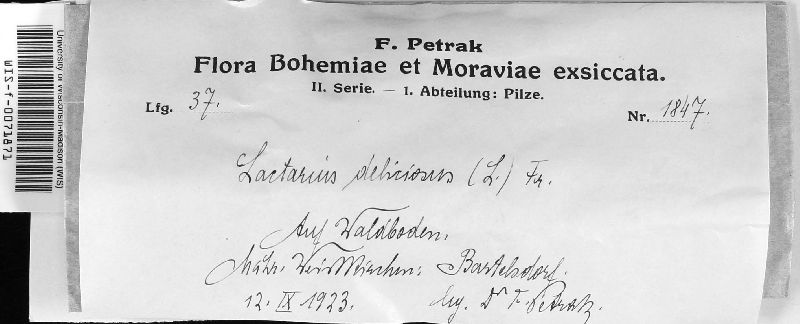 F. Petrak
Flora Bohemiae et Moraviae exsiccata.
II. Serie. — 1. Abteilung: Pilze.
Lfg. 37.
Nr. 1847.
Lactarius deliciosus (L.) Fr.
Auf Waldboden.
Mähr. Weisskirchen: Bartelsdorf.
12. IX 1923. leg. Dr F. Petrak.
University of Wisconsin-Madison (WIS)
WIS-f-0071871